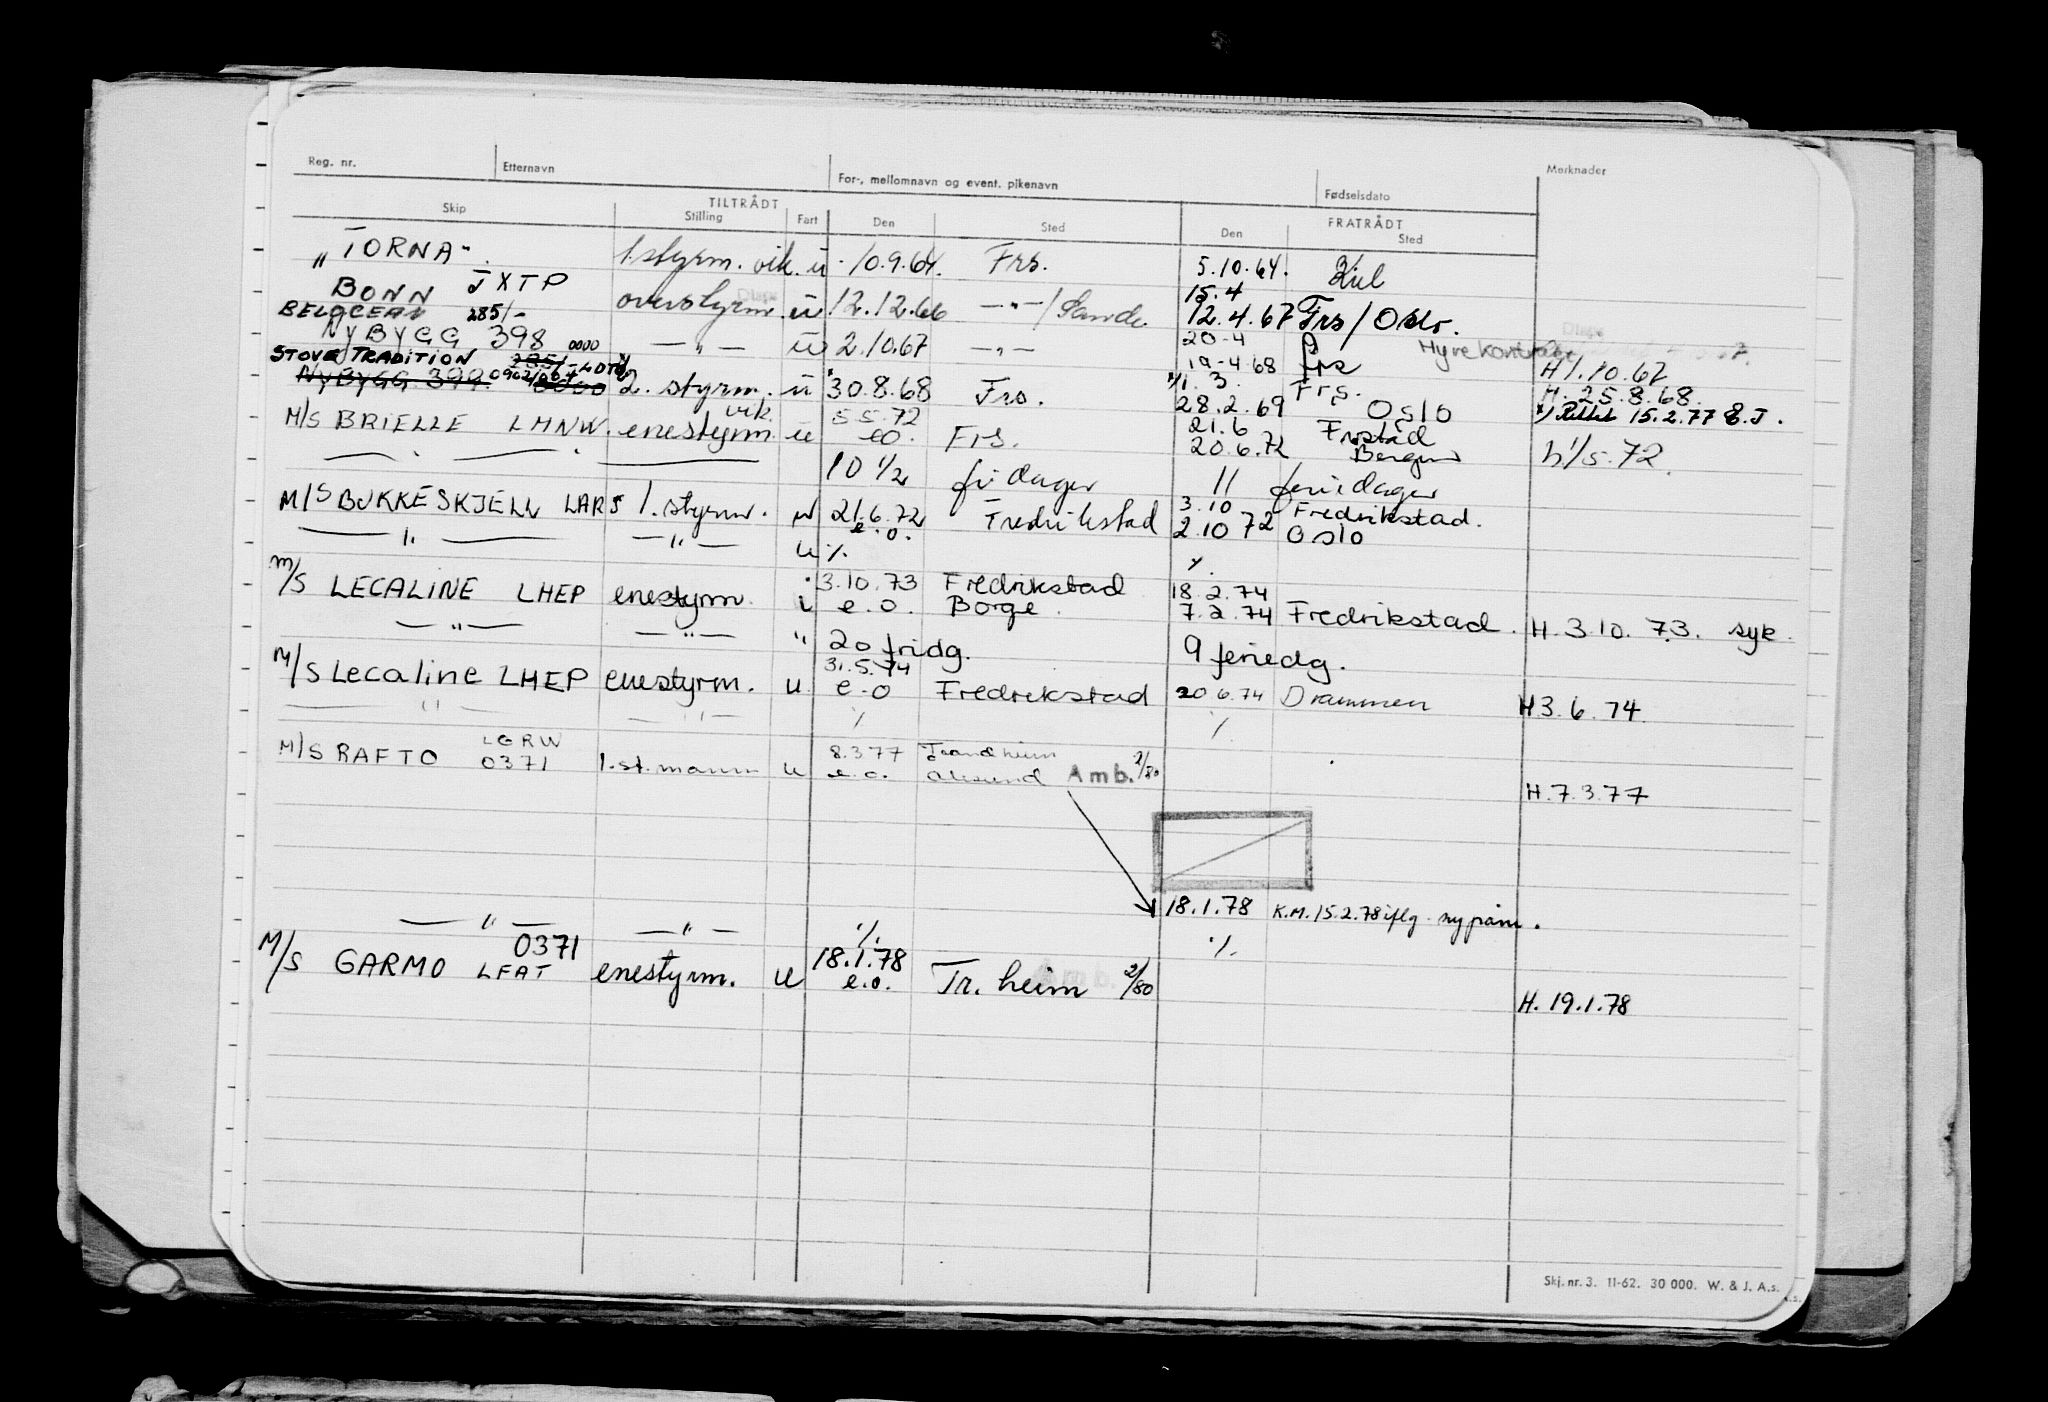 Reg. nr. Etternavn For-, mellomnavn og event. pikenavn Fødselsdato Merknader
TILTRÅDT FRATRÅDT
Skip Stilling Fart Den Sted Den Sted
"TORNA". 1.styrm. vik. u 10.9.64. Frs. 5.10.64. Kiel
BONN JXTP overstyrm. u 12.12.66 —"—/Sande 15.4 12.4.67 Frs/Oslo.
BELOCEAN 285/-
NYBYGG 398 0000 —"— u 2.10.67 —"— 20-4 19-4 68 frs Hyrekontrakt H 1.10.67
STOVE TRADITION
NYBYGG 399. 2. styrm. u 30.8.68 Frs. 1.3. 28.2.69 Frs. Oslo H. 25.8.68.
x) Rettet 15.2.77 E.J.
M/S BRIELLE LMNW. enestyrm. vik. u 5.5.72 e.o. Frs. 21.6 20.6.72 Frstad Bergen h 1/5.72.
10 1/2 fridager 11 feriedager
M/S BUKKESKJELL LARS 1.styrm. u 21.6.72 e.o. Fredrikstad 3.10 2.10 72 Fredrikstad. Oslo
—"— —"— u %. %.
M/S LECALINE LHEP enestyrm. i 3.10.73 e.o. Fredrikstad Borge. 18.2.74 7.2.74 Fredrikstad. H.3.10.73. syk.
—"— —"— " 20 fridg. 9 feriedg.
M/S Lecaline LHEP enestyrm. u 31.5.74 e.o Fredrikstad 20.6.74 Drammen H3.6.74.
—"— —"— % %.
M/S RAFTO LGRW 0371 1.st.mann u 8.3.77 e.o. Trondheim Ålesund Amb. 2/80
H.7.3.77
18.1.78 K.M.15.2.78 iflg. ny påm.
—"— —"— %. %.
M/S GARMO 0371 LFAT enestyrm. u 18.1.78 e.o. Tr.heim Amb. 2/80
H. 19.1.78
Skj. nr. 3. 11-62. 30 000. W. & J. A.s.